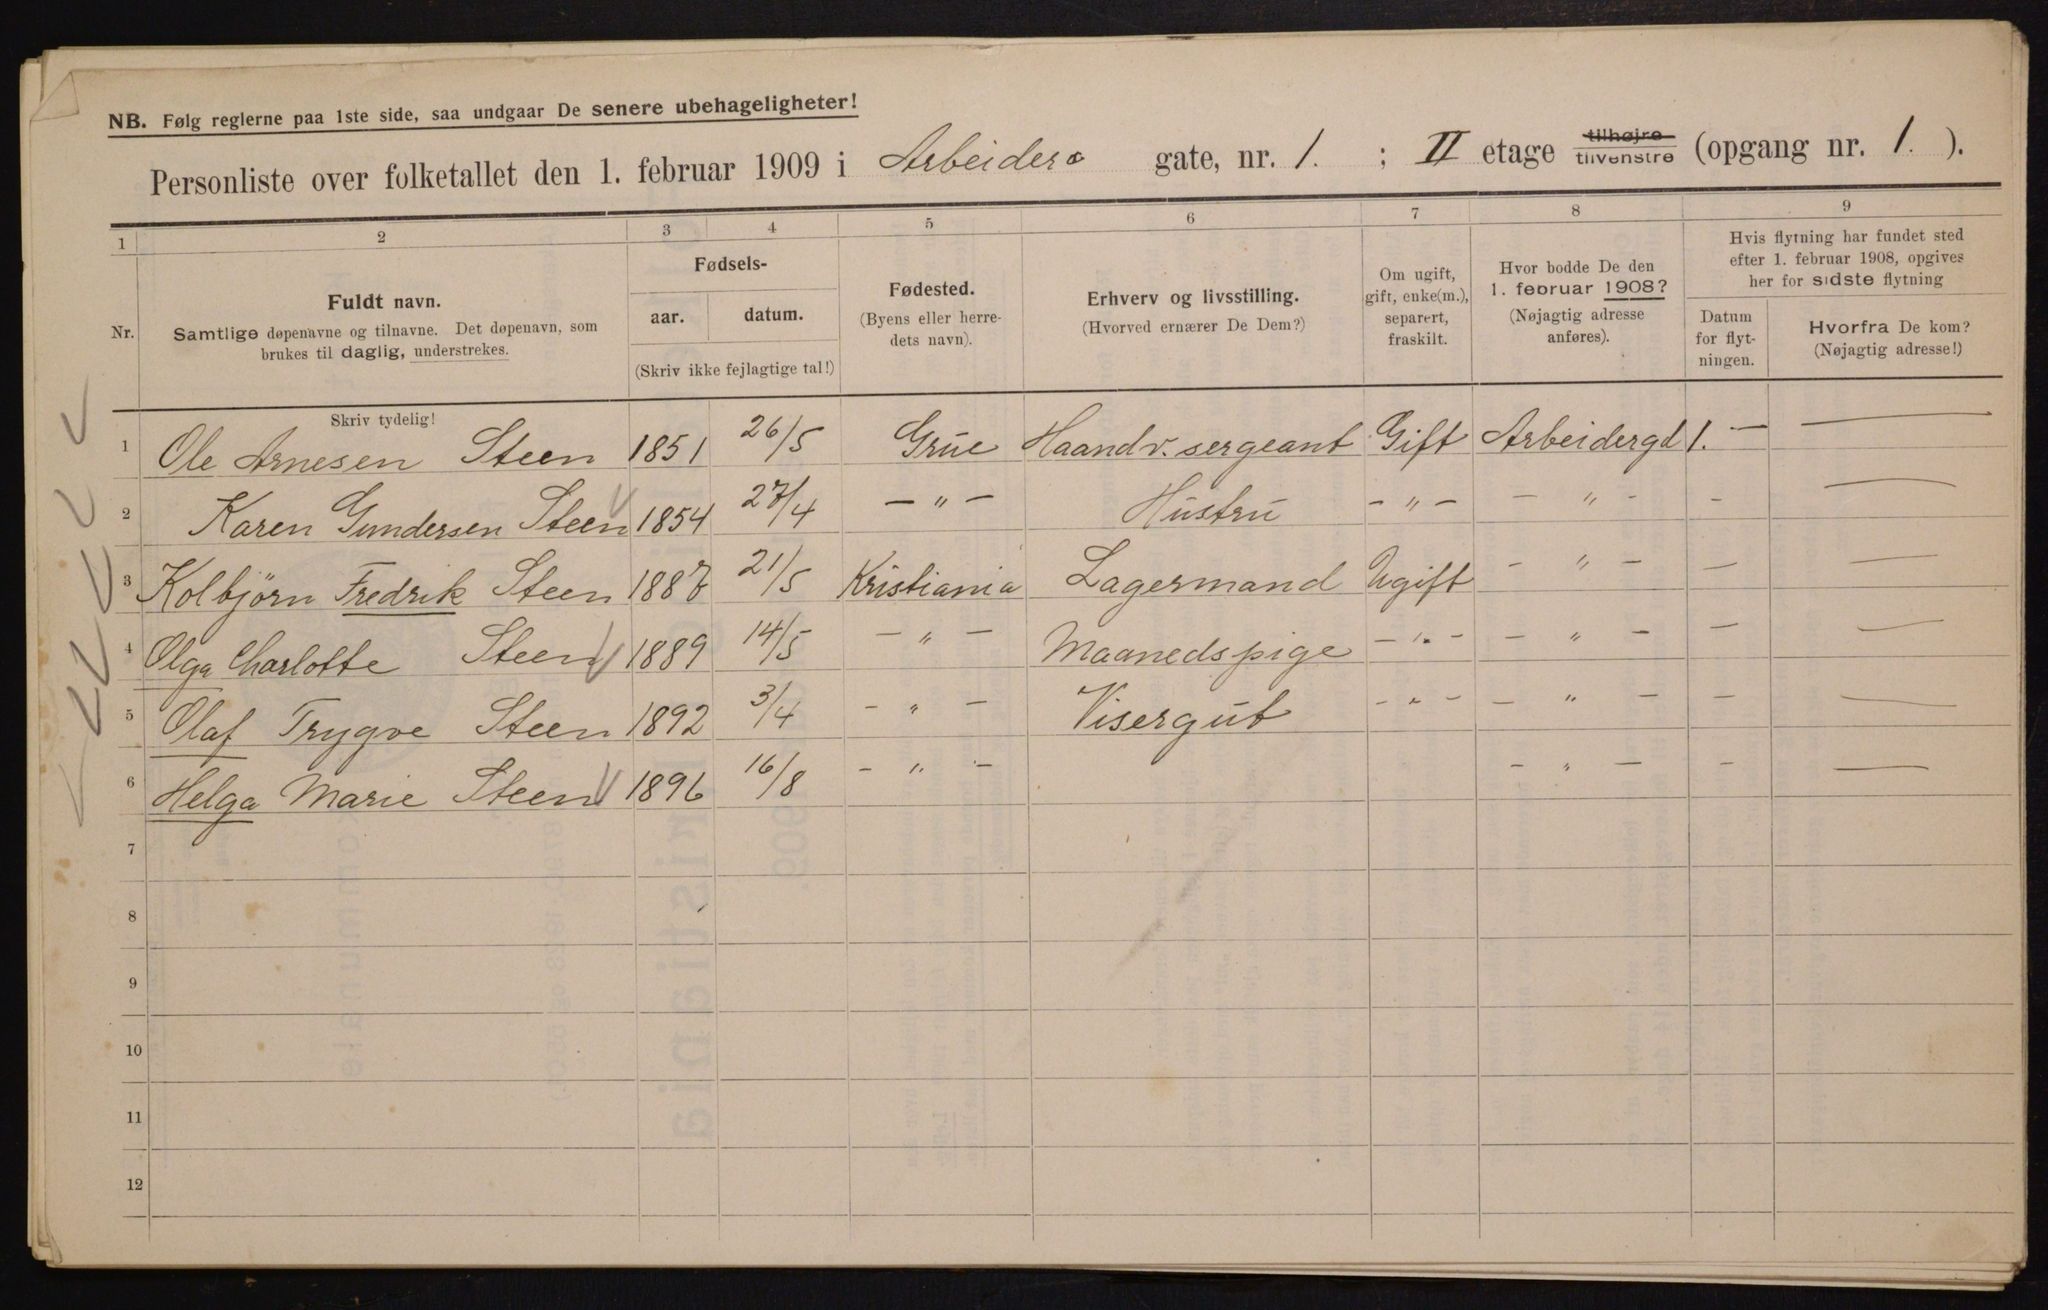 NB. Følg reglerne paa 1ste side, saa undgaar De senere ubehageligheter!
Personliste over folketallet den 1. februar 1909 i Arbeider gate, nr. 1. ; II etage tilhøjre tilvenstre (opgang nr. 1. ).
1 2 3 4 5 6 7 8 9
Nr.
Fuldt navn.
Samtlige døpenavne og tilnavne. Det døpenavn, som
brukes til daglig, understrekes.
Fødsels-
aar. datum.
(Skriv ikke fejlagtige tal!)
Fødested.
(Byens eller herre-
dets navn).
Erhverv og livsstilling.
(Hvorved ernærer De Dem?)
Om ugift,
gift, enke(m.),
separert,
fraskilt.
Hvor bodde De den
1. februar 1908?
(Nøjagtig adresse
anføres).
Hvis flytning har fundet sted
efter 1. februar 1908, opgives
her for sidste flytning
Datum
for flyt-
ningen.
Hvorfra De kom?
(Nøjagtig adresse!)
Skriv tydelig!
1 Ole Arnesen Steen 1851 26/5 Grue Haandv. sergeant Gift Arbeidergd 1. — —
2 Karen Gundersen Steen 1854 27/4 — " — Hustru — " — — " — — —
3 Kolbjørn Fredrik Steen 1887 21/5 Kristiania Lagermand Ugift — " — — —
4 Olga Charlotte Steen 1889 14/5 — " — Maanedspige — " — — " — — —
5 Olaf Trygve Steen 1892 3/4 — " — Visergut — " — — " — — —
6 Helga Marie Steen 1896 16/8 — " — — " — — —
7
8
9
10
11
12